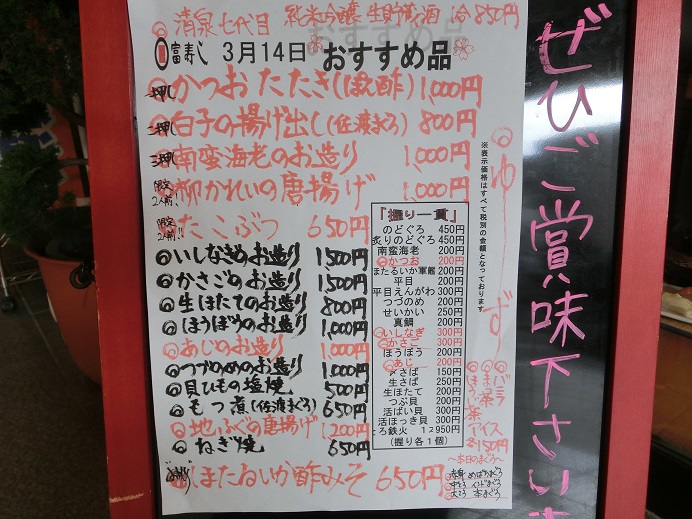 ◎清泉七代目 純米吟醸 生貯蔵酒 冷850円
富寿し 3月14日 おすすめ品
一押し かつおたたき(ぽん酢) 1,000円
二押し 白子の揚げ出し(佐渡まだら) 800円
三押し 南蛮海老のお造り 1,000円
限定2人前!! 柳かれいの唐揚げ 1,000円
限定2人前!! たこぶつ 650円
◎いしなぎのお造り 1,500円
◎かさごのお造り 1,500円
◎生ほたてのお造り 800円
◎ほうぼうのお造り 1,000円
◎あじのお造り 1,000円
◎つづのめのお造り 1,000円
◎貝ひもの塩焼 500円
◎もつ煮(佐渡まぐろ) 650円
◎地ふぐの唐揚げ 1,200円
◎ねぎ焼 650円
ほたるいか酢みそ 650円
「握り一貫」
のどぐろ 450円
炙りのどぐろ 450円
南蛮海老 200円
◎かつお 200円
ほたるいか軍艦 200円
平目 200円
平目えんがわ 300円
つづのめ 200円
せいかい 250円
真鯛 200円
◎いしなぎ 300円
◎かさご 300円
ほうぼう 200円
◎あじ 200円
〆さば 150円
生さば 250円
生ほたて 200円
つぶ貝 200円
活ばい貝 300円
活ほっき貝 300円
とろ鉄火 12 950円
(握り各1個)
※表示価格はすべて税別の金額となっております。
◎ゆず
バニラ
まっ茶
ほうじ茶
アイス
各150円
〜本日のまぐろ〜
赤身 めばちまぐろ
中とろ インドまぐろ
大とろ 本まぐろ
ぜひご賞味下さいま